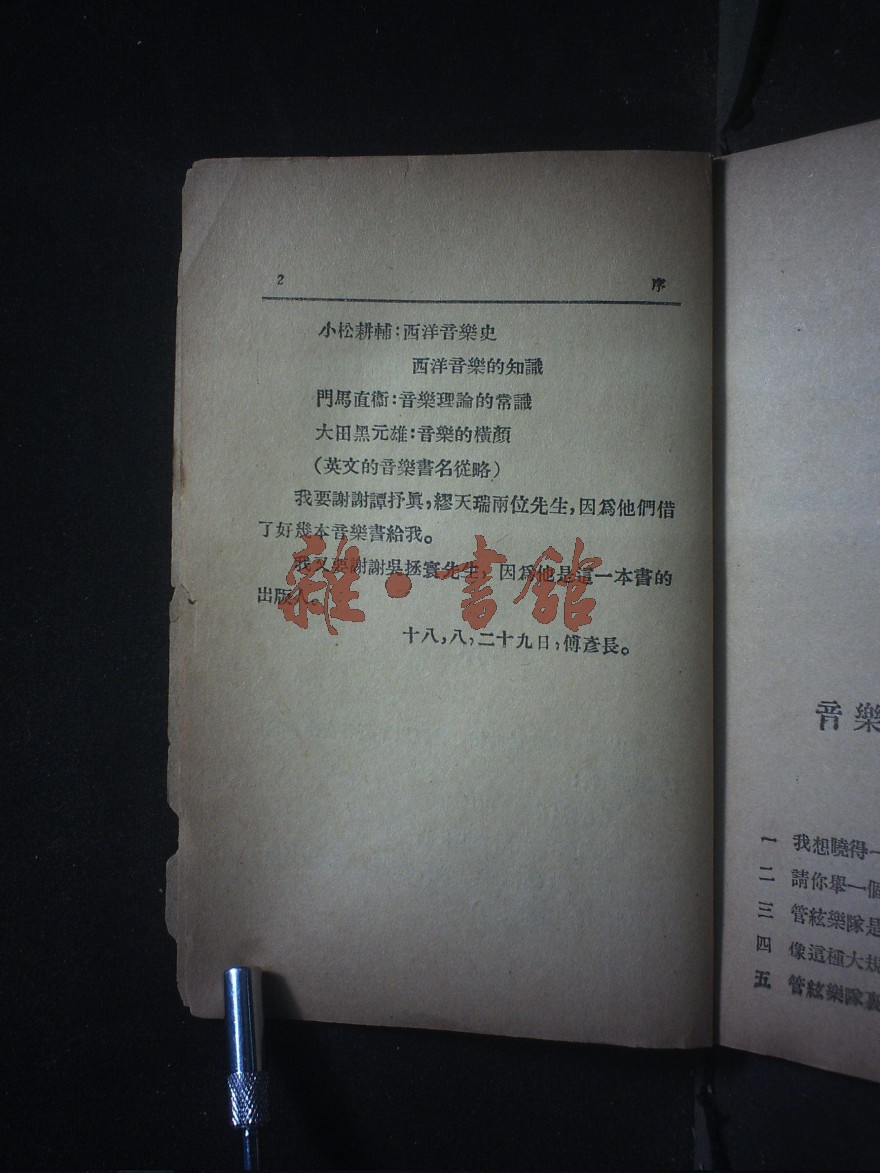 2 序
小松耕輔:西洋音樂史
西洋音樂的知識
門馬直衞:音樂理論的常識
大田黑元雄:音樂的橫顏
(英文的音樂書名從略)
我要謝謝譚抒眞,繆天瑞兩位先生,因爲他們借
了好幾本音樂書給我。
我又要謝謝吳拯寰先生,因爲他是這一本書的
出版人。
十八,八,二十九日,傅彥長。
雜·書館
音樂
一 我想曉得一
二 請你舉一個
三 管絃樂隊是
四 像這種大規
五 管絃樂隊裏